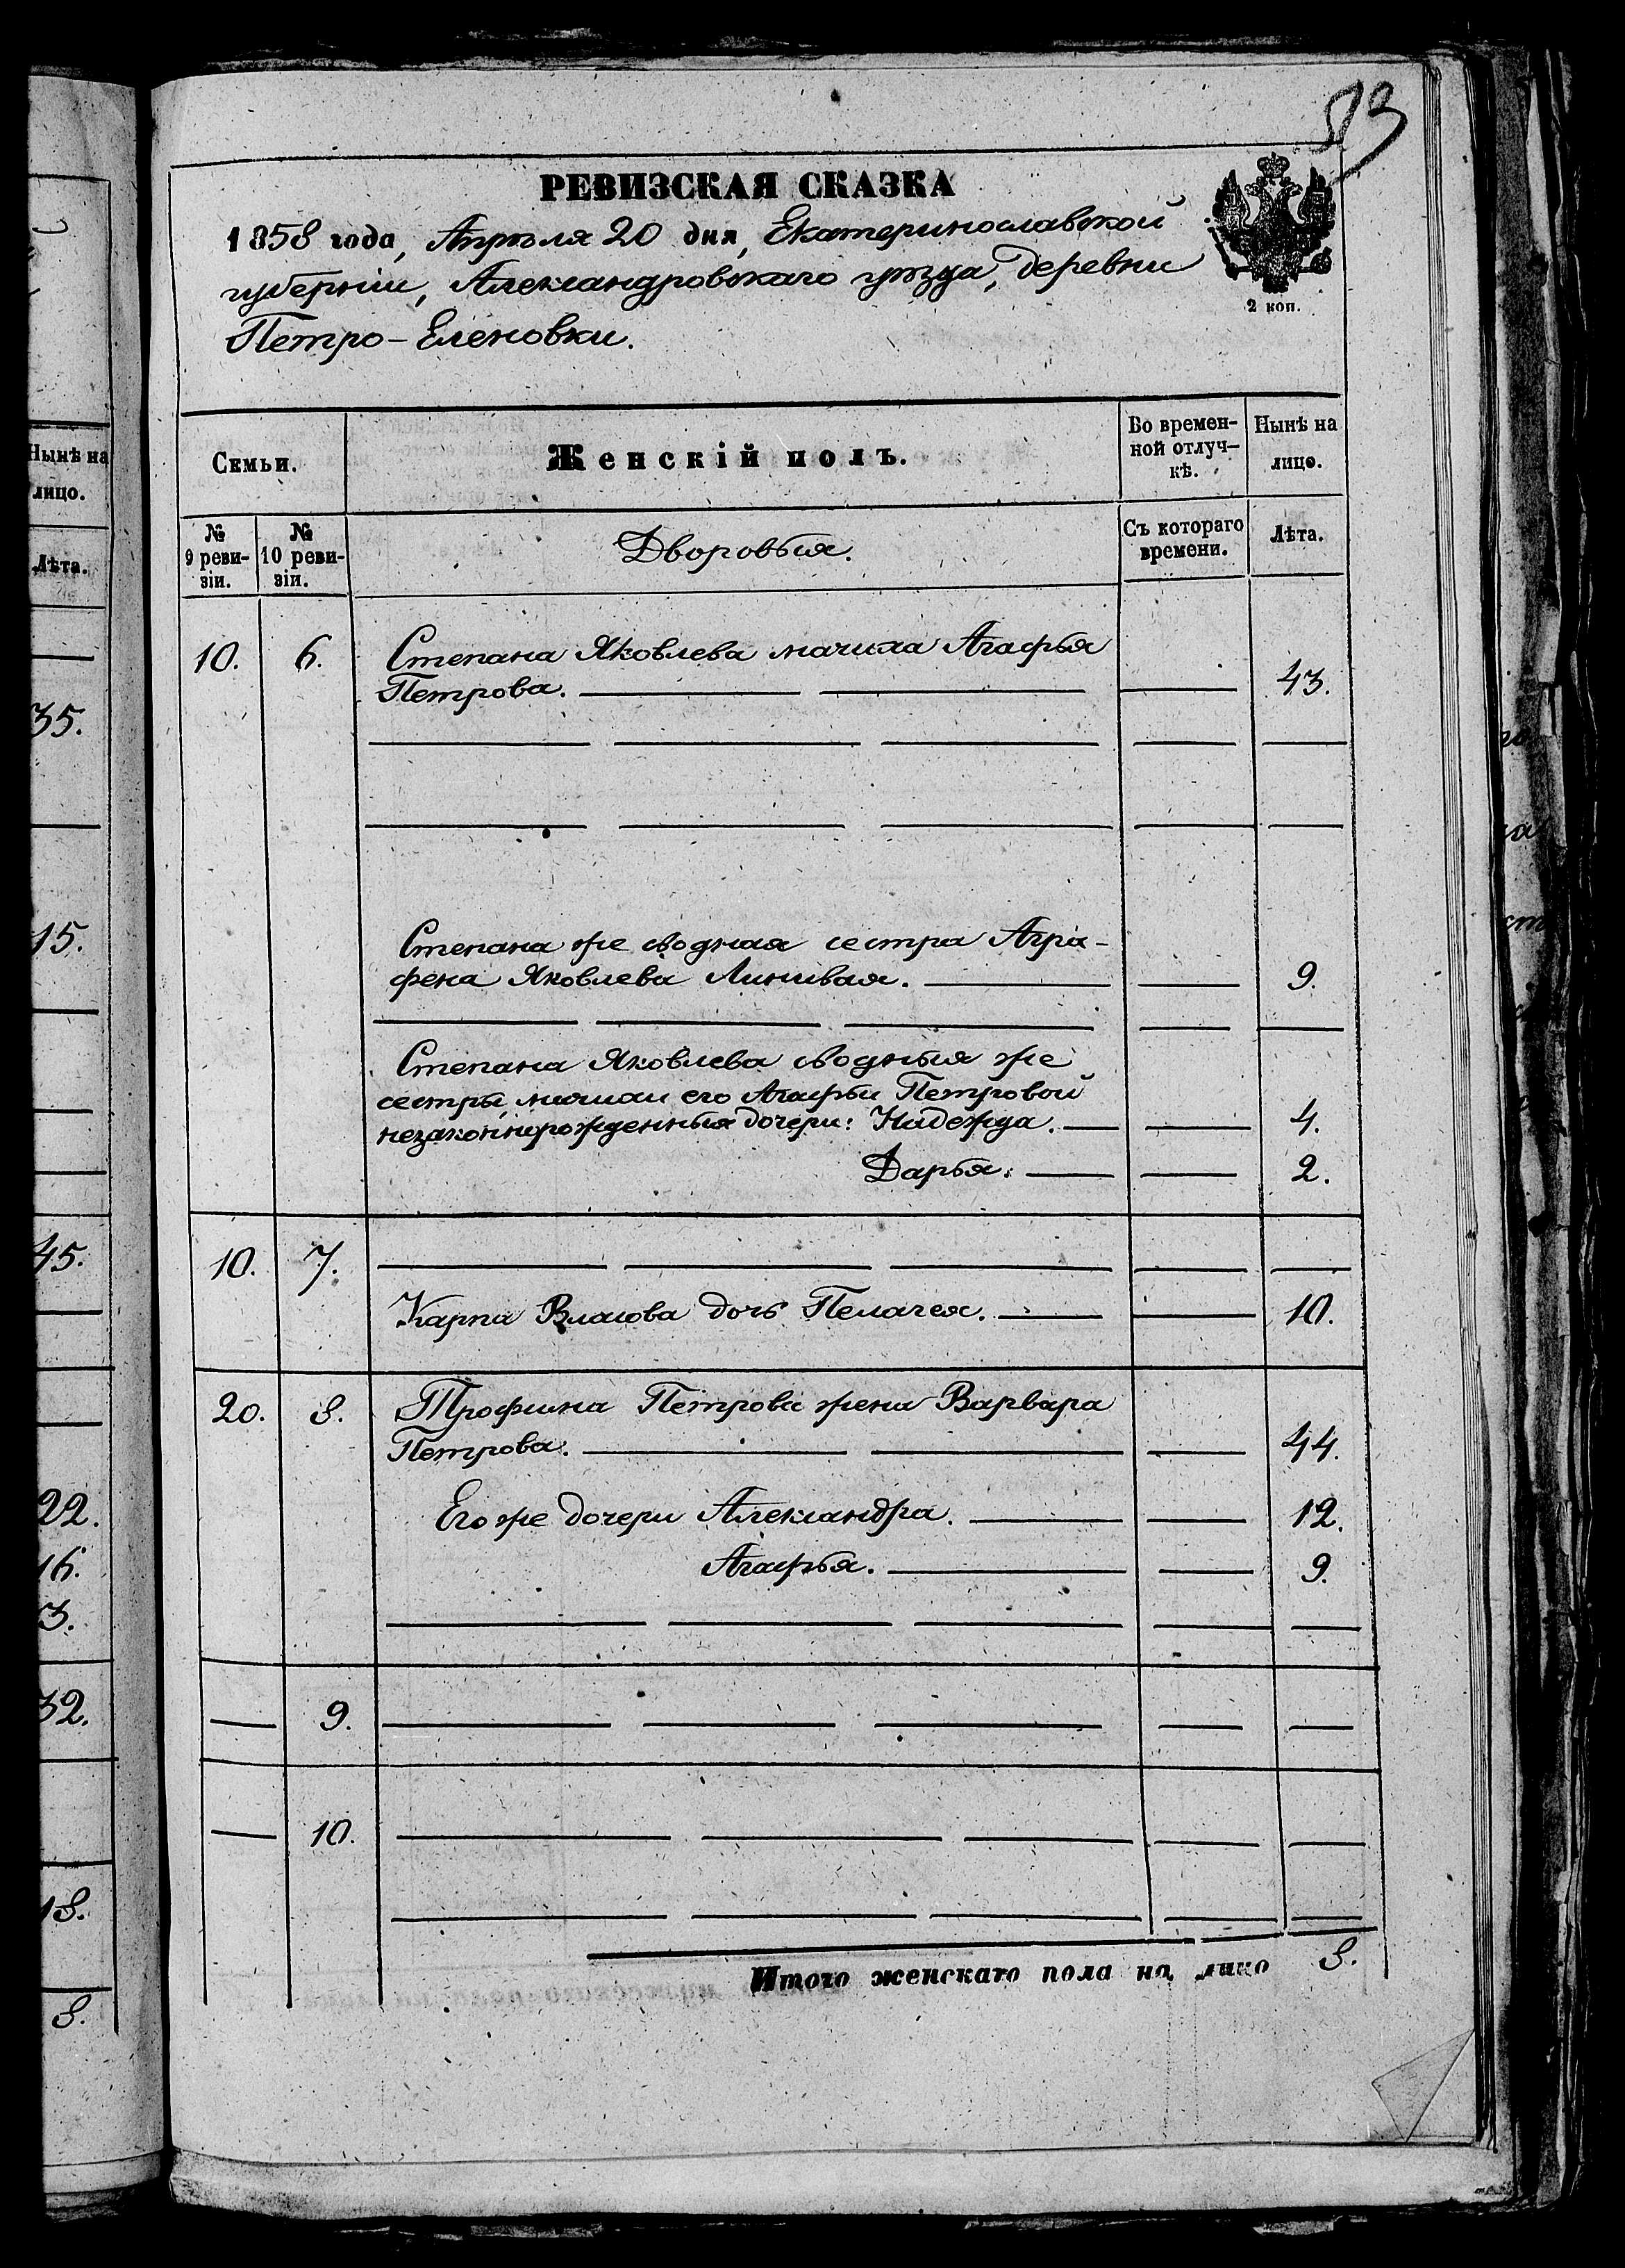 83
РЕВИЗСКАЯ СКАЗКА
1858 года, Апрѣля 20 дня, Екатеринославской
губерніи, Александровскаго уѣзда, деревни
Петро-Еленовки.
2 коп.
Семьи.
Женскій полъ.
Во времен-
ной отлуч-
кѣ.
Нынѣ на
лицо.
№
9 реви-
зіи.
№
10 реви-
зіи.
Дворовыя.
Съ котораго
времени.
Лѣта.
10. 6. Степана Яковлева мачиха Агафья
Петрова. 43.
Степана же сводная сестра Агра-
фена Яковлева Линивая. 9.
Степана Яковлева сводныя же
сестры, мачихи его Агафьи Петровой
незаконнорожденныя дочери: Надежда. 4.
Дарья. 2.
10. 7.
Карпа Власова дочь Пелагея. 10.
20. 8. Трофима Петрова жена Варвара
Петрова. 44.
Его же дочери Александра. 12.
Агафья. 9.
9.
10.
Итого женскаго пола на лицо 8.
Нынѣ на
лицо.
Лѣта.
35.
15.
45.
22.
16.
3.
32.
18.
8.